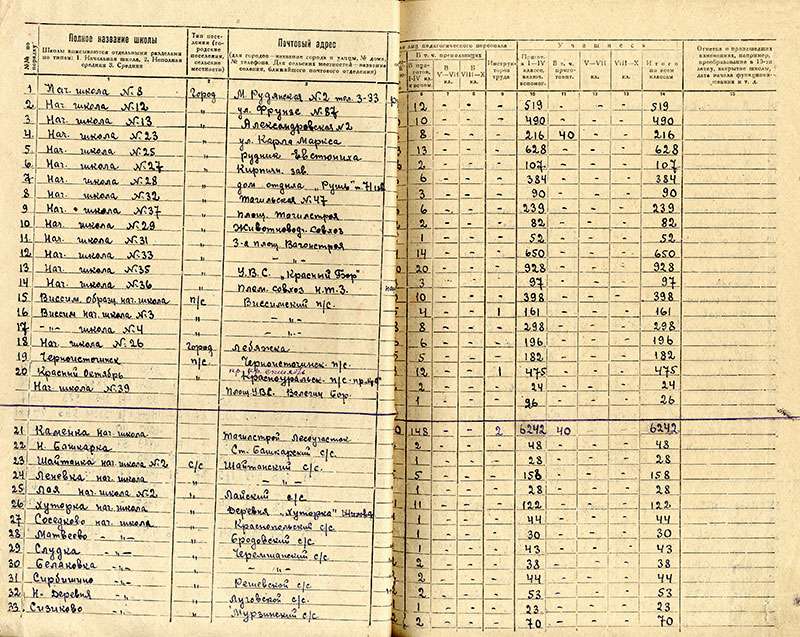 №№ по порядку
Полное название школы
Школы вписываются отдельными разделами по типам: 1. Начальная школа, 2. Неполная средняя 3. Средняя
Тип поселения (городские поселения, сельские местности)
Почтовый адрес
(для городов—название города и улицы, № дома, № телефона. Для сельских местностей—название селения, ближайшего почтового отделения)
лиц педагогического персонала
В т. ч. преподающих
В V—VII кл.
В VIII—X кл.
Учащиеся
В т. ч. пригото.
V—VII кл.
VIII—X кл.
Итого по всем классам
1 Нач. школа № 8 Город М. Рудянская №2 тел. 3-33
2 Нач. школа № 12 " ул. Фрунзе №87 12 - - - 519 - - - 519
3 Нач. школа № 13 " Александровская №2 10 - - - 490 - - - 490
4 Нач. школа № 23 " ул. Карла Маркса 8 - - - 216 40 - - 216
5 Нач. школа № 25 " 13 - - - 628 - - - 628
6 Нач. школа № 27 " Кирпичн. зав. 2 - - - 107 - - - 107
7 Нач. школа № 28 " 6 - - - 384 - - - 384
8 Нач. школа № 32 " Тагильская №47 3 - - - 90 - - - 90
9 Нач. школа № 37 " Площ. Тагилстроя 6 - - - 239 - - - 239
10 Нач. школа № 29 " Животновод. Совхоз 2 - - - 82 - - - 82
11 Нач. школа № 31 " 3-я площ. Вагонстроя 1 - - - 52 - - - 52
12 Нач. школа № 33 " 14 - - - 650 - - - 650
13 Нач. школа № 35 " У.В.С. „Красный Бор" 20 - - - 928 - - - 928
14 Нач. школа № 36 " Плем. совхоз Н.Т.З. 3 - - - 97 - - - 97
15 Виссим. образц. нач. школа п/с Виссимский п/с. 10 - - - 398 - - - 398
16 Виссим нач. школа № 3 " -"- 4 - - 1 161 - - - 161
17 -"- школа № 4 " -"- 8 - - - 298 - - - 298
18 Нач. школа № 26 город Лебяжка 6 - - - 196 - - - 196
19 Черноисточинск " Черноисточинск. п/с. 5 - - - 182 - - - 182
20 Красный Октябрь " Красноуральск. п/с. 12 - - 1 475 - - - 475
Нач школа № 39 Площ. УВС. Валегин Бор. 2 - - - 24 - - - 24
1 - - - 26 - - - 26
148 - - 2 6242 40 - - 6242
21 Каменка нач. школа Тагилстрой Лесоучасток
22 Н. Башкарка Ст. Башкарский с/с. 2 - - - 48 - - - 48
23 Шайтанка нач. школа № 2 с/с Шайтанский с/с. 1 - - - 28 - - - 28
24 Леновка нач. школа " -"- 5 - - - 158 - - - 158
25 Лая нач. школа № 2 " Лайский с/с 1 - - - 28 - - - 28
26 Хуторка нач. школа " Деревня „Хуторка" 11 - - - 122 - - - 122
27 Соседково нач. школа " Краснопольский с/с 1 - - - 44 - - - 44
28 Матвеево -"- " Бродовский с/с 1 - - - 30 - - - 30
29 Слудка -"- " Черемшанский с/с. 1 - - - 43 - - - 43
30 Беляковка -"- " -"- 2 - - - 38 - - - 38
31 Сирбишино -"- " Решевской с/с 2 - - - 44 - - - 44
32 Н- Деревня -"- " Луговской с/с. 2 - - - 53 - - - 53
33 Сизиково -"- " Мурзинский с/с. 1 - - - 23 - - - 23
2 - - - 70 - - - 70